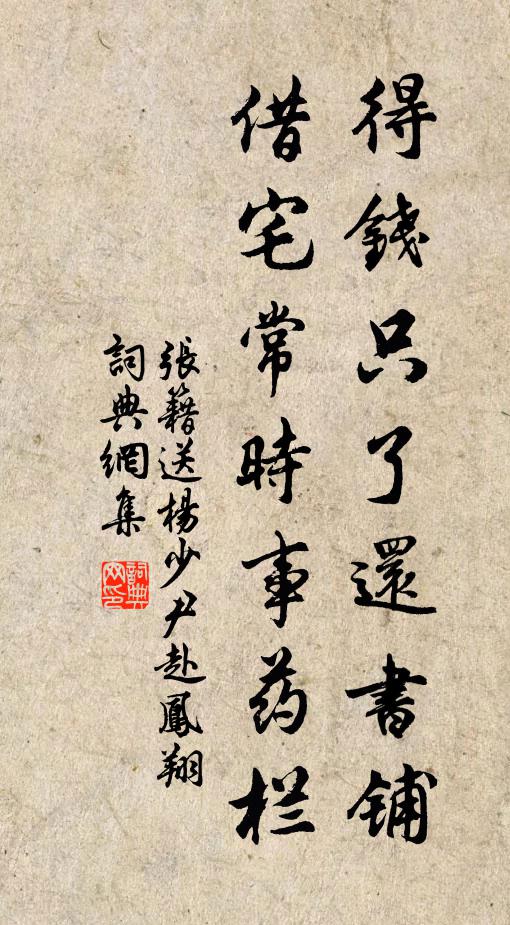 得錢只了還書舖
借宅常時事药栏
張籍送楊少尹赴鳳翔
詞典網集
詞典网印